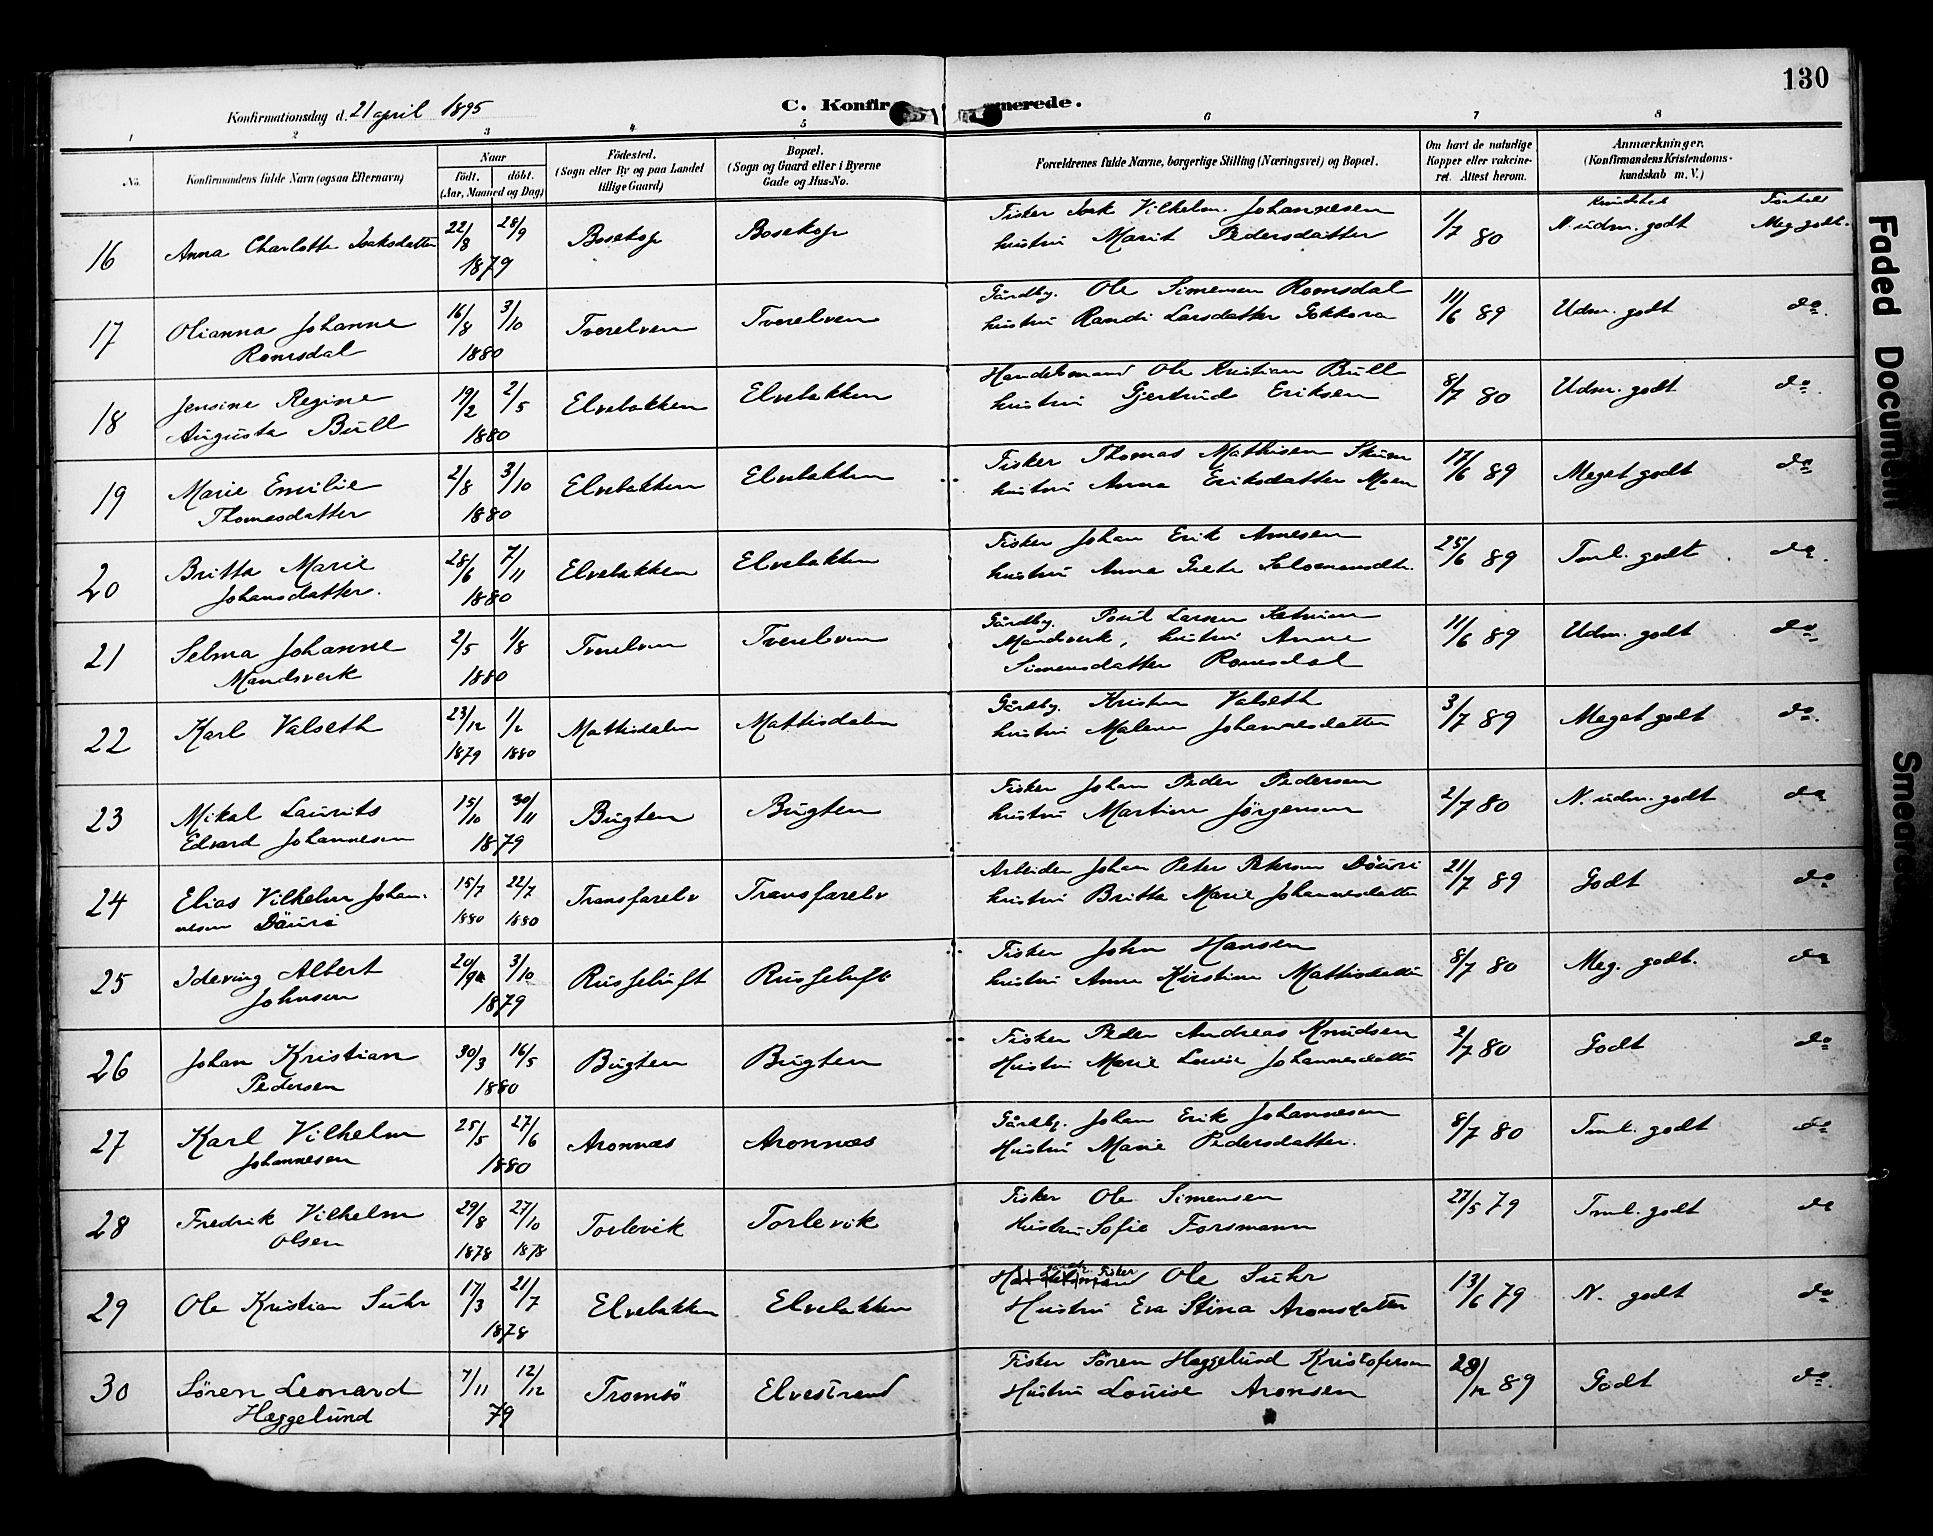 130
C. Konfirmerede.
Konfirmationsdag d. 21 april 1895
1 2 3 4 5 6 7 8
No.
Konfirmandens fulde Navn (ogsaa Efternavn)
Naar
födt. döbt.
(Aar, Maaned og Dag)
Födested.
(Sogn eller By og paa Landet
tillige Gaard)
Bopæl.
(Sogn og Gaard eller i Byerne
Gade og Hus-No.
Forældrenes fulde Navne, borgerlige Stilling (Næringsvei) og Bopæl.
Om havt de naturlige
Kopper eller vakcine-
ret. Attest herom.
Anmærkninger.
(Konfirmandens Kristendoms-
kundskab m. V.)
16 Anna Charlotte Isaksdatter 22/8 28/9 1879 Bosekop Bosekop
Fisker Isak Vilhelm Johannesen
hustru Marit Pedersdatter 1/7 80 N. udm. godt Meg. godt.
17 Olianna Johanne
Romsdal 16/8 3/10 1880 Tverelven Tverelven
Gårdbg. Ole Simensen Romsdal
hustru Randi Larsdatter 11/6 89 Udm. godt do.
18 Jensine Regine
Augusta Bull 19/2 2/5 1880 Elvebakken Elvebakken
Handelsmand Ole Kristian Bull
hustru Gjertrud Eriksen 8/7 80 Udm. godt do.
19 Marie Emilie
Thomasdatter 2/8 3/10 1880 Elvebakken Elvebakken
Fisker Thomas Mathisen
hustru Anna Eriksdatter Moen 17/6 89 Meget godt do
20 Britta Marie
Johansdatter. 28/6 7/11 1880 Elvebakken Elvebakken
Fisker Johan Erik Arnesen
hustru Anna Grete Salomonsdtr. 25/6 89 Tml. godt do.
21 Selma Johanne
Mandsverk 2/5 1/8 1880 Tverelven Tverelven
Gårdbg. Poul Larsen
Mandsverk, hustru Anne
Simensdatter Romsdal 11/6 89 Udm. godt do.
22 Karl Valseth 23/12 1879 1/2 1880 Mathisdalen Mathisdalen
Gårdbg. Kristen Valseth
hustru Malene Johannesdatter 3/7 89 Meget godt do.
23 Mikal Laurits
Edvard Johannesen 15/10 30/11 1879 Bugten Bugten
Fisker Johan Peder Pedersen
hustru Martine Jörgensen 2/7 80 N. udm. godt do
24 Elias Vilhelm Johan-
nesen Däuri 15/7 1880 22/7 1880 Transfarelv Transfarelv
Arbeider Johan Peter Peterson Däuri
hustru Britta Marie Johannesdatter 21/7 89 Godt do
25 Albert
Johnsen 3/10 1879 Russeluft Russeluft
Fisker John Hansen
hustru Anne Kirstine Mathisdatter 8/7 80 Meg. godt. do
26 Johan Kristian
Pedersen 30/3 16/5 1880 Bugten Bugten
Fisker Peder Andreas Knudsen
Hustru Marie Lovise Johannesdatter 2/7 80 Godt do
27 Karl Vilhelm
Johannesen 25/5 27/6 1880 Aronnæs Aronnæs
Gårdbg. Johan Erik Johannesen
Hustru Marie Pedersdatter. 8/7 80 Tml. godt do
28 Fredrik Vilhelm
Olsen 29/8 1878 27/10 1878 Torlevik Torlevik
Fisker Ole Simensen
Hustru Sofie Forsmann 27/5 79 Tml. godt do
29 Ole Kristian Suhr 17/3 21/7 1878 Elvebakken Elvebakken
Handelsmand Fisker Ole Suhr
Hustru Eva Stina Aronsdatter 13/6 79 N. godt do
30 Sören Leonard
Hæggelund 7/11 12/12 79 Tromsö Elvestrand
Fisker Sören Hæggelund Kristofersen
Hustru Louise Aronsen 28/12 89 Godt do.
Faded Document
Smeared